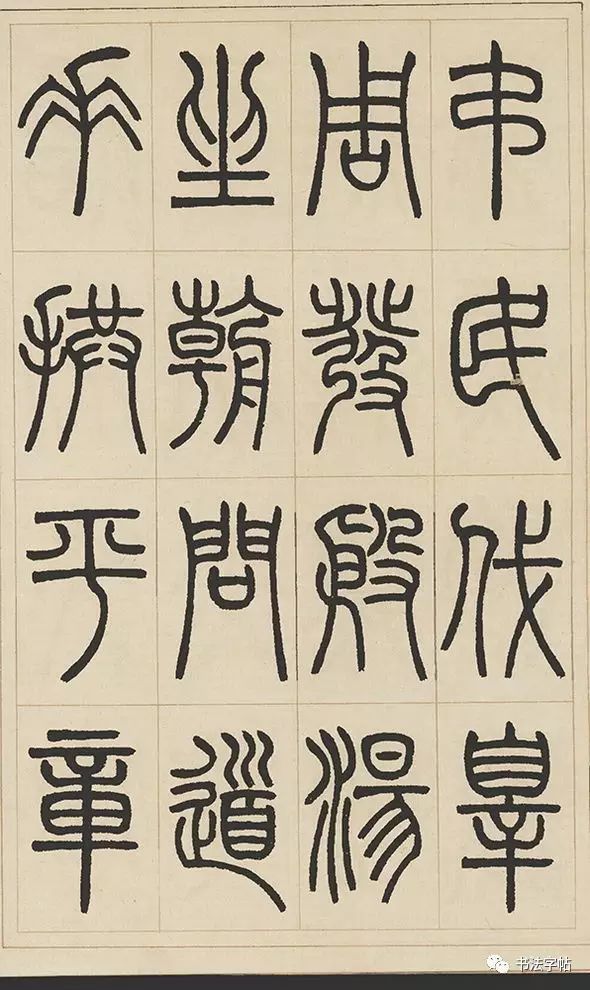 弔民伐辠
周發殷湯
坐朝問道
垂拱平章
书法字帖